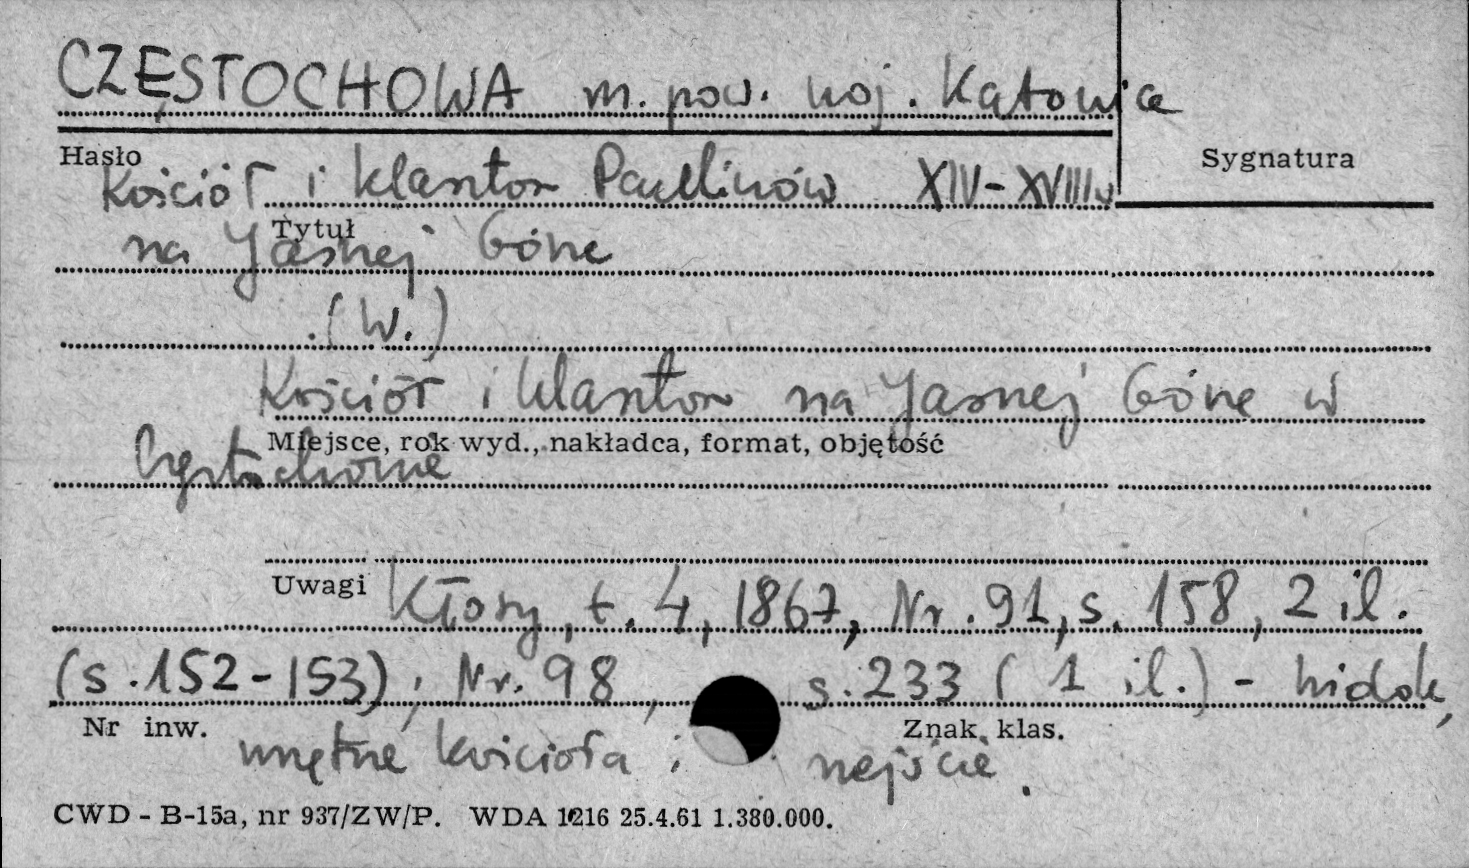 CZĘSTOCHOWA m. pow. woj. Katowice
Hasło
Sygnatura
Kościół i klasztor Paulinów XIV-XVIII w
Tytuł
na Jasnej Górze
(W.)
Kościół i klasztor na Jasnej Górze w
Miejsce, rok wyd., nakładca, format, objętość
Częstochowie
Uwagi
Kłosy, t. 4, 1867, Nr. 91, s. 158, 2 il.
(s. 152-153), Nr. 98, s. 233 (1 il.) - widok,
Nr inw.
Znak klas.
wnętrze kościoła i wejście.
CWD - B-15a, nr 937/ZW/P. WDA 1216 25.4.61 1.380.000.